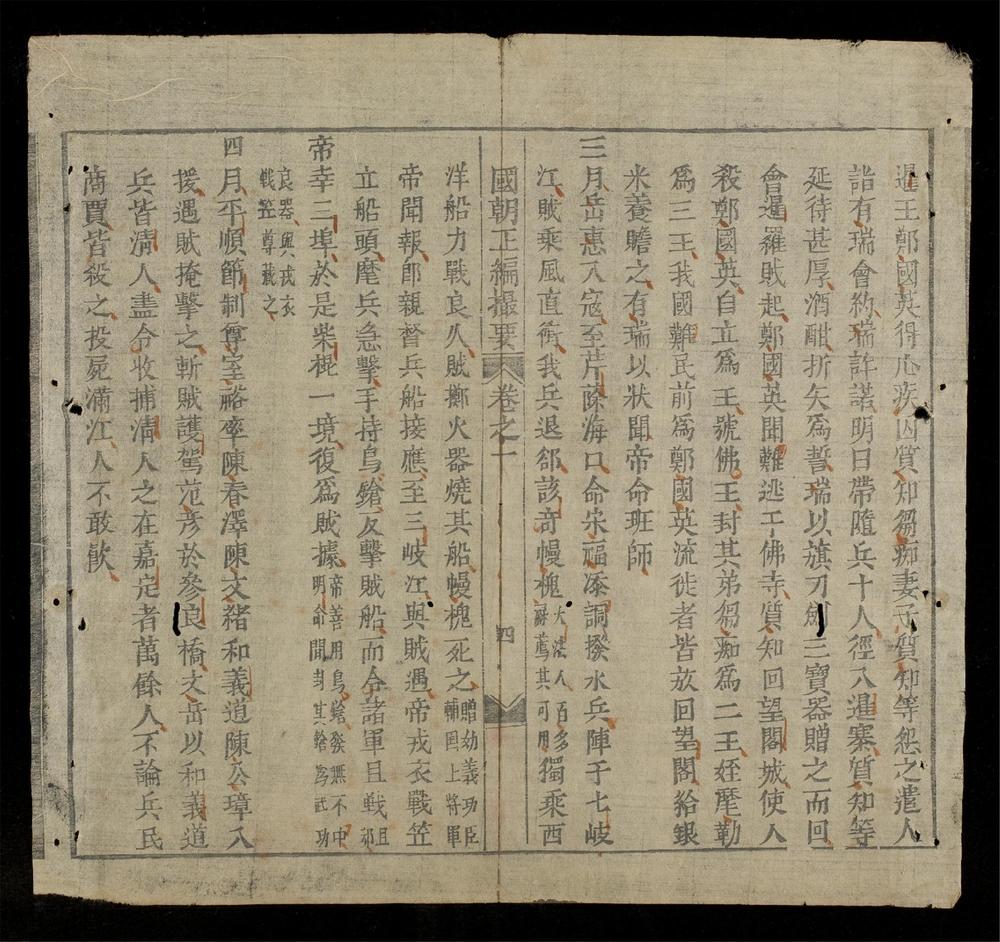 暹王鄭國英得心疾囚質知芻痴妻子質知等怨之遣人
詣有瑞會約瑞許諾明日帶隨兵十人徑入暹寨質知等
延待甚厚酒酣折矢爲誓瑞以旗刀劍三寶器贈之而回
會暹羅賊起鄭國英聞難逃于佛寺質知回望閣城使人
殺鄭國英自立爲王號佛王封其弟芻痴爲二王姪摩勒
爲三王我國難民前爲鄭國英流徙者皆放回望閣給銀
米養贍之有瑞以狀聞帝命班師
三月岳惠入寇至芹蒢海口命宋福添詷撥水兵陣于七岐
江賊乘風直衝我兵退郤該奇幔槐大法人百多酥薦其可用獨乘西
國朝正編撮要 卷之一 四
洋船力戰良久賊擲火器燒其船幔槐死之贈効義功臣輔國上將軍
帝聞報卽親督兵船接應至三岐江與賊遇帝戎衣戰笠
立船頭麾兵急擊手持鳥鎗反擊賊船而令諸軍且戰且郤
帝幸三埠於是柴棍一境復爲賊據帝善用鳥鎗發無不中明命間封其鎗爲武功
良器與戎衣戰笠尊藏之
四月平順節制尊室裕率陳春澤陳文緒和義道陳公璋入
援遇賊掩擊之斬賊護駕范彥於參良橋文岳以和義道
兵皆淸人盡令收捕淸人之在嘉定者萬餘人不論兵民
商賈皆殺之投屍滿江人不敢飮